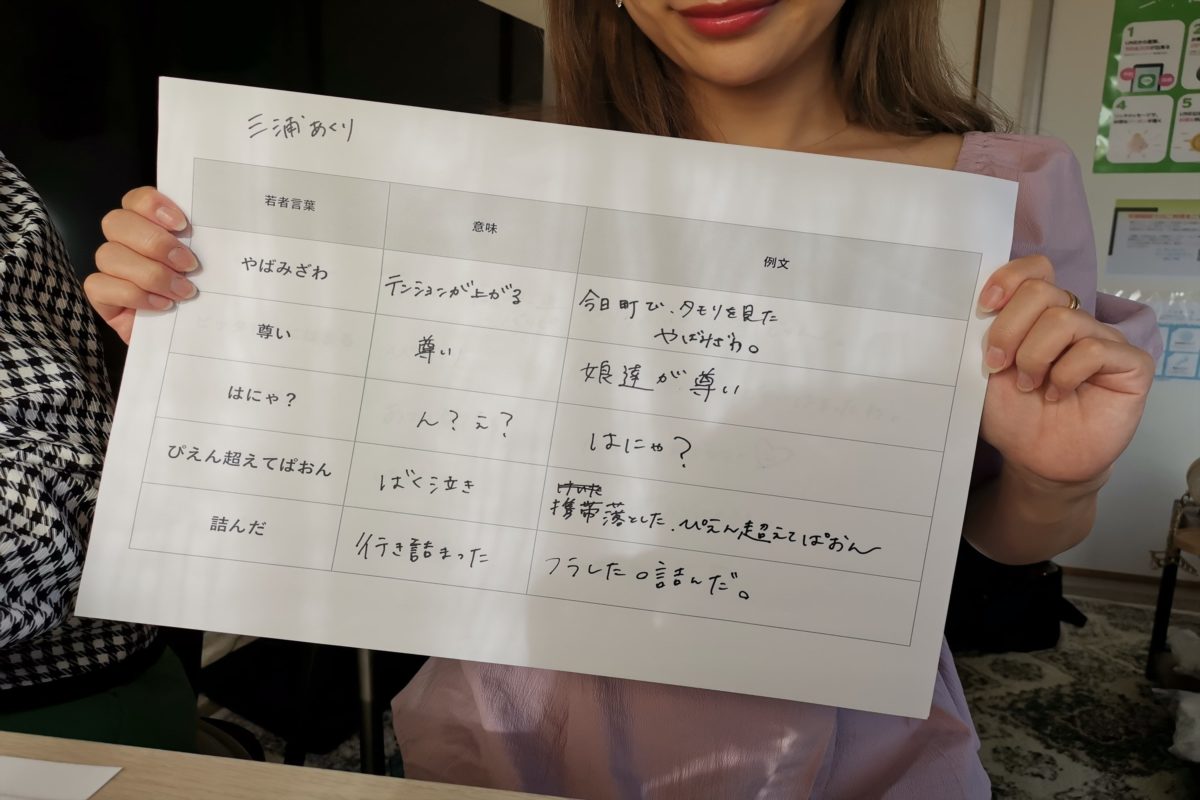 三浦あぐり
若者言葉
意味
例文
やばみざわ
テンションが上がる
今日町で、タモリを見た
やばみざわ。
尊い
尊い
娘達が尊い
はにゃ？
ん？え？
はにゃ？
ぴえん超えてぱおん
ばく泣き
携帯落とした、ぴえん超えてぱおん
詰んだ
行き詰まった
フラした。詰んだ。
1
4
5